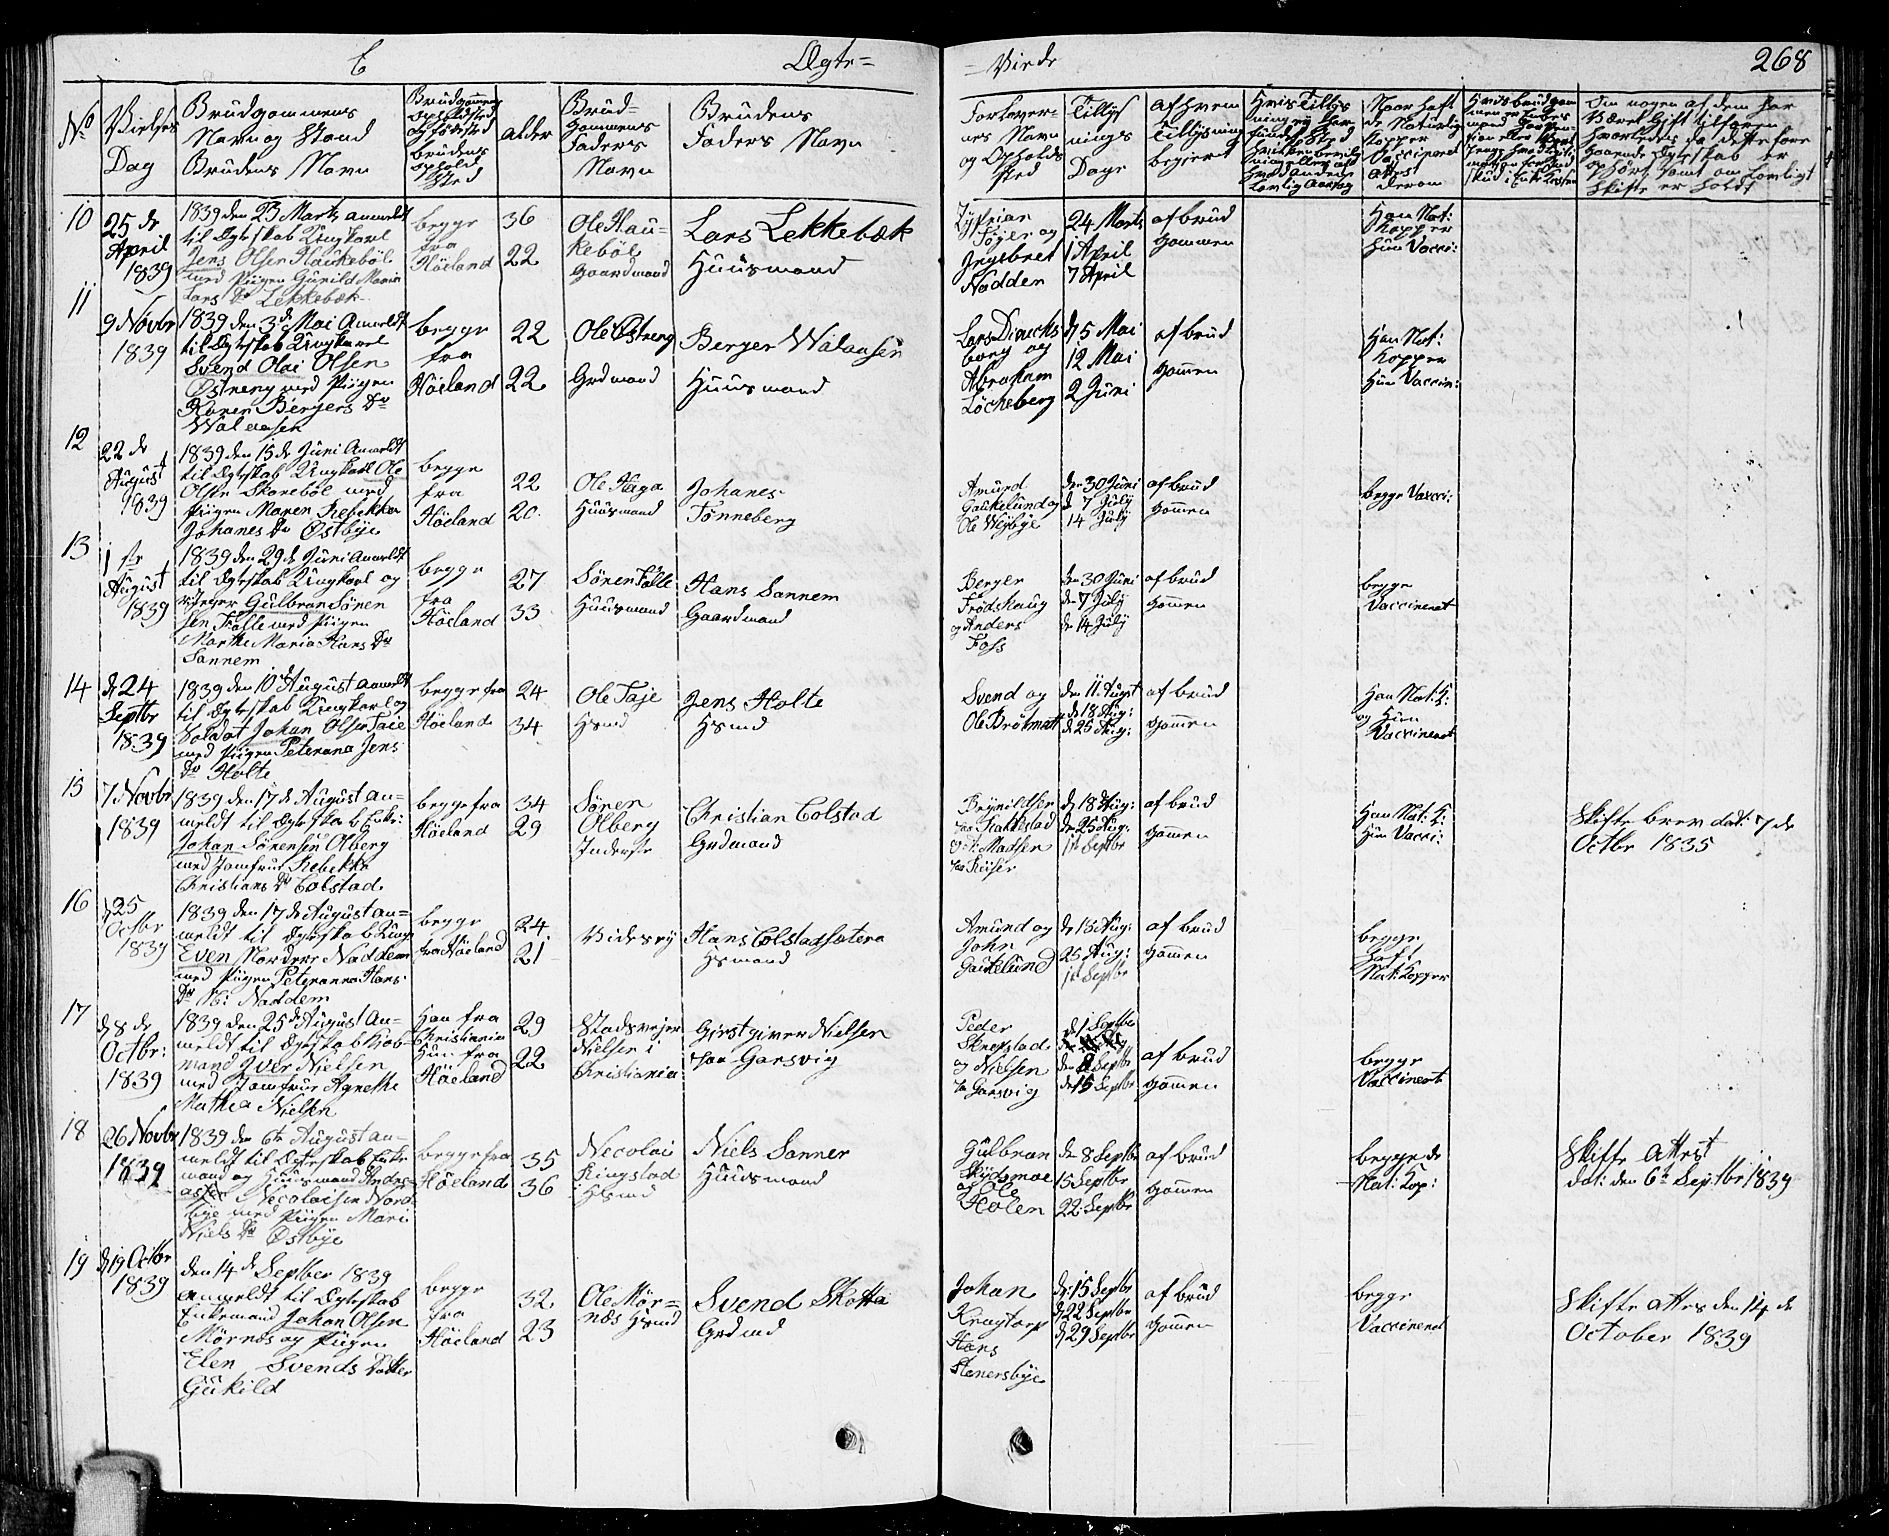 C
Ægte=
=Viede
268
No
Vielses
Dag
Brudgommens
Navn og Stand
Brudens Navn
Brudgommens
Opholdsted
og fødested
brudens
ophold
Sted
alder
Brud=
gommens
Faders
Navn
Brudens
Faders Navn
Forlover-
nes Navn
og Opholds
sted
Tillys
nings
Dage
af hvem
Tillysning
begjeret
Naar haft
de Naturlig
Kopper
Vaccineret
Attest
derom
10
25 de
April
1839
1839 den 23 Marts anmeldt
til Ægteskab Ungkarl
Jens Olsen Haukebøl
med Pigen Gunild Maria
Lars Dr Lekkebæk
begge
fra
Høeland
36
22
Ole Hau-
kebøl
Gaardmand
Lars Lekkebæk
Huusmand
Søger og
Ingebret
Nadden
24 Marts
1 April
7 April
af brud
gommen
Han Nat:
Kopper
Hun Vacci:
11
9 Novbr
1839
1839 den 3de Mai Anmeldt
til Ægteskab Ungkarl
Svend Olai Olsen
Østreng med Pigen
Karen Bergers Dr
Walaasen
begge
fra
Høeland
22
22
Ole Østreng
Grdmand
Berger Walaasen
Huusmand
Abraham
Løcheberg
d 5 Mai
12 Mai
2 Juni
af brud
gommen
Han Nat:
Kopper
Hun Vaccin:
12
22 de
August
1839
1839 den 15 de Juni Anmeldt
til Ægteskab Ungkarl Ole
Olsen Skarebøl med
Pigen Maren Rebekka
Johanes Dr Østbye
begge
fra
Høeland
22
20
Ole Haga
Huusmand
Johanes
Tønneberg
Amund
Gaukelund og
Ole Wejbye
den 30 Juni
d 7 July
14 July
af brud
gommen
begge Vacci:
13
1 ste
August
1839
1839 den 29 de Juni Anmeldt
til Ægteskab Ungkarl og
Gulbran Søren
sen Følle med Pigen
Marthe Maria Hans Dr
Sannem
begge
fra
Høeland
27
33
Søren Følle
Huusmand
Hans Sannem
Gaardmand
Berger
Frødshaug
og Anders
Foss
den 30 Juni
den 7 July
de 14 July
af brud
gommen
begge
Vaccineret
14
d 24
Septbr
1839
1839 den 10 de August anmeldt
til Ægteskab Ungkarl og
Soldat Johan Olsen Taie
med Pigen Peterana Jens
Dr Holte
begge fra
Høeland
24
34
Ole Taje
Hsmd
Jens Holte
Hsmd
Svend og
den 11. Augst
d 18 Aug:
d 25 Aug:
af brud
gommen
Han Nat: K:
og Hun
Vaccineret
15
7 Novbr
1839
1839 den 17 de August an=
meldt til Ægteskab Enke:
Johan Sørensen Olberg
med Jomfru Rebekka
Christians Dr Colstad
begge fra
Høeland
34
29
Søren
Olberg
Inderste
Christian Colstad
Grdmand
d 18 Aug:
de 25 Aug:
1st Septbr
af brud
gommen
Han Nat: K:
Hun Vacci:
Skifte brev dat: 7 de
Octbr 1835
16
d 25
Octbr
1839
1839 den 17 de August an=
meldt til Ægteskab Ung
Even Nadden
med Pigen Peteranna Hans
Dr Nadden
begge
fra Høeland
24
21
Hans Colstadsætera
Hsmand
Amund og
John
Gautelund
de 18 Aug:
25 Aug:
1st Septbr
af brud
gommen
begge
haft
Nat: Kopper
17
d 8 de
Octbr:
1839
1839 den 25 de August an=
meldt til Ægteskab Kiøb
mand Iver Nielsen
med Jomfru Agnethe
Mathea Nielsen
Han fra
Christiania
Hun fra
Høeland
29
22
Stadsvejer
Nielsen i
Christiania
Giestgiver Nielsen
paa Garsvig
Peder
og Nielsen
Garsvig
d 1 Septbr
den 8 Septbr
de 15 Septbr
af brud
gommen
begge
Vaccineret
18
26 Novbr
1839
1839 den 6te August an=
meldt til Ægteskab Enke
mand og Huusmand Andre
as Necolaisen Nord
bye med Pigen Mari
Niels Dr Østbye
begge fra
Høeland
35
36
Necolai
Ringstad
Hsmd
Niels Sanner
Huusmand
Gulbran
og Ole
Holen
de 8 Septbr
15 Septbr
22 Septbr
af brud
gommen
begge de
Nat: Kop:
Skifte attest
dat: den 6te Septbr 1839
19
d 19 Octbr
1839
den 14 de Septber 1839
anmeldt til Ægteskab
Enkemand Johan Olsen
Mørnæs og Pigen
Elen Svends Datter
Gukild
begge
fra
Høeland
32
23
Ole Mør=
næs Hsmd
Svend Skotta
Grdmd
Johan
Krogtorp
Hans
Stenersbye
de 15 Septbr
d 22 Septbr
d 29 Septbr
af brud
gommen
begge
Vaccineret
Skifte attes den 14 de
October 1839